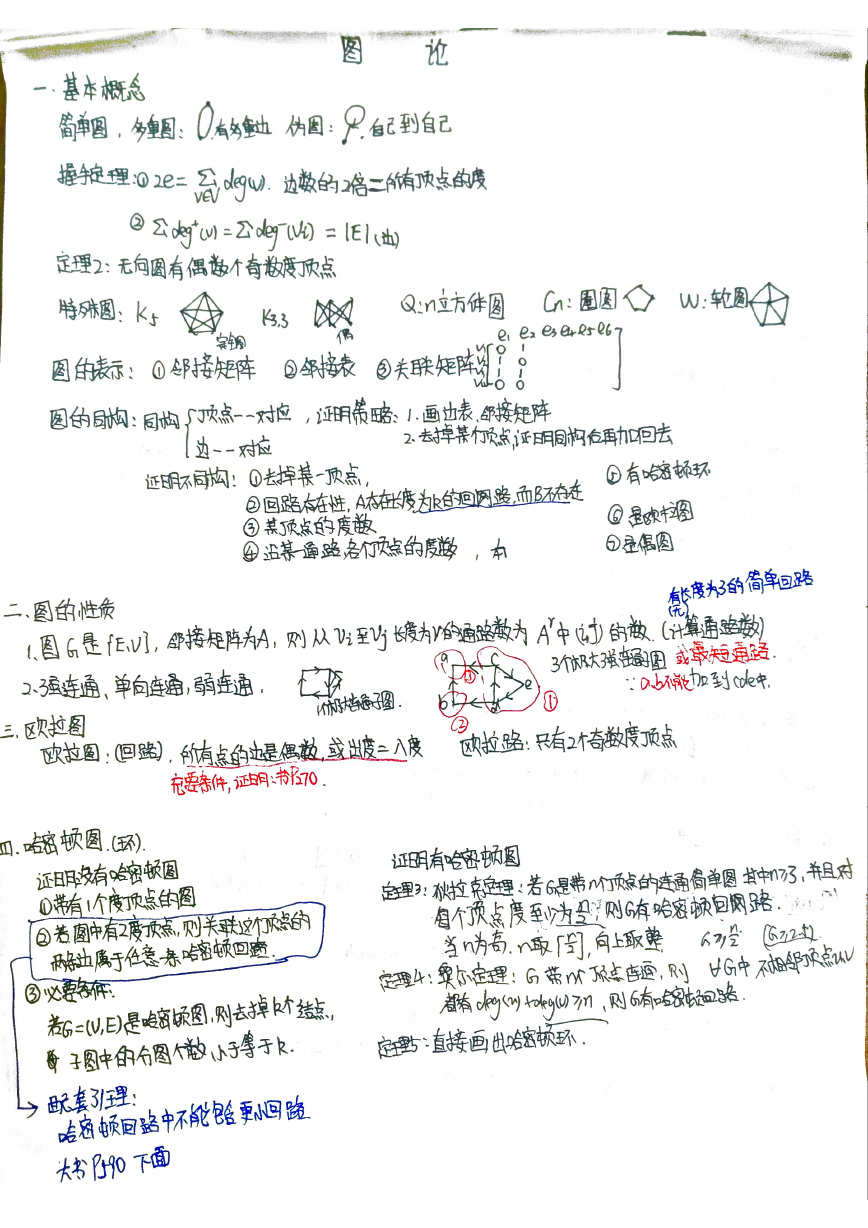 图 论
一.基本概念
简单图,多重图: 有多重边 伪图: 自己到自己
握手定理:① 2e=∑v∈V deg(v). 边数的2倍=所有顶点的度
② ∑deg⁺(v)=∑deg⁻(vi) = |E|(出)
定理2:无向图有偶数个奇数度顶点
特殊图: K5 完全图 K3,3 偶 Q:n立方体图 Cn:圈图 W:轮图
图的表示: ①邻接矩阵 ②邻接表 ③关联矩阵 e1 e2 e3 e4 e5 e6
图的同构:同构 顶点一一对应 ,证明策略:1.画边表.邻接矩阵
边一一对应 2.去掉某个顶点,证明同构后再加回去
证明不同构: ①去掉某一顶点, ⑤有哈密顿环
②回路存在性,A存在长度为k的回路,而B不存在
③某顶点的度数 ⑥是欧拉图
④沿某一通路,各个顶点的度数 , ⑦是偶图
有长度为3的简单回路
(无)
二.图的性质
1.图G是{E,V},邻接矩阵为A,则从vi至vj长度为r的通路数为 Aʳ中(i,j)的数.(计算通路数)
或最短通路.
2.强连通、单向连通,弱连通. 个极大连通子图. a c b d e ① ② ③ 3个极大强连通图
∵a,b不能加到cde中.
三.欧拉图
欧拉图:(回路),所有点的边是偶数,或出度=入度 欧拉路:只有2个奇数度顶点
充要条件,证明:书P270.
四.哈密顿图.(环).
证明没有哈密顿图
①带有1个度顶点的图
②若图中有2度顶点,则关联这个顶点的
两条边属于任意一条哈密顿回路.
③必要条件:
若G=(V,E)是哈密顿图,则去掉k个结点,
子图中的分图个数,小于等于k.
配套引理:
哈密顿回路中不能包含更小回路
大书P590 下面
证明有哈密顿图
定理3:狄拉克定理:若G是带n个顶点的连通简单图 其中n≥3,并且对
每个顶点度至少为n/2,则G有哈密顿回路.
当n为奇.n取⌈n/2⌉,向上取整.
定理4:奥尔定理:G带n个顶点连通,则 ∀G中 不相邻顶点u,v
都有deg(u)+deg(v)≥n,则G有哈密顿回路.
定理5:直接画出哈密顿环.